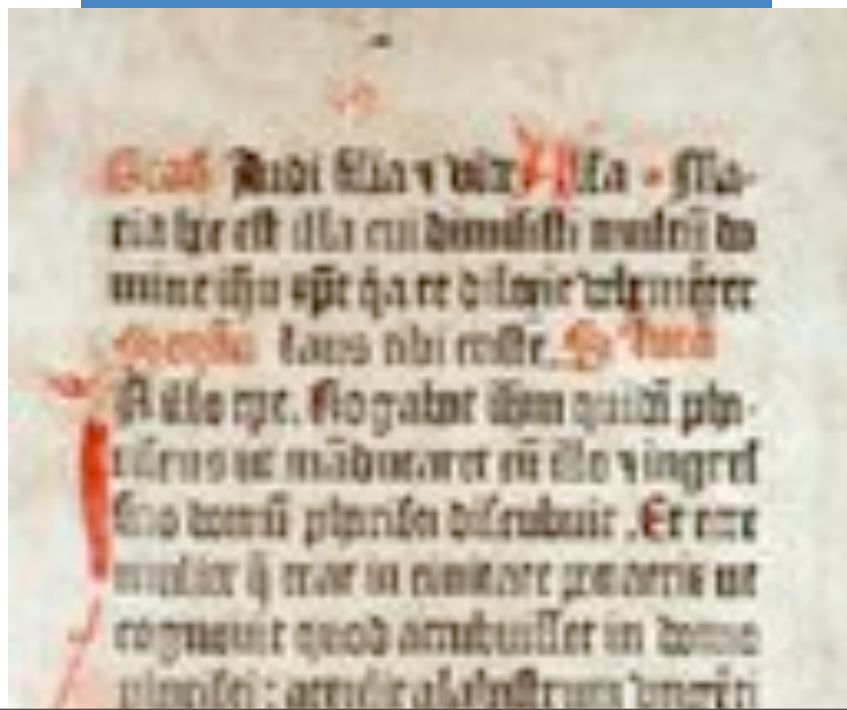 Grad. Audi filia ⁊ vide Alla . Ma-
ria hec est illa cui dimisisti multū do
mine ihū xp̄e q̄a te dilexit
laus tibi criste. Lucā
In illo tpe. Rogabat ihm quidā pha-
riseus ut māducaret cū illo ⁊ ingres
sus domū pharisei discubuit . Et ecce
mulier q̄ erat in civitate peccatrix ut
cognovit quod accubuisset in domo
pharisei : attulit alabastrum ungēti